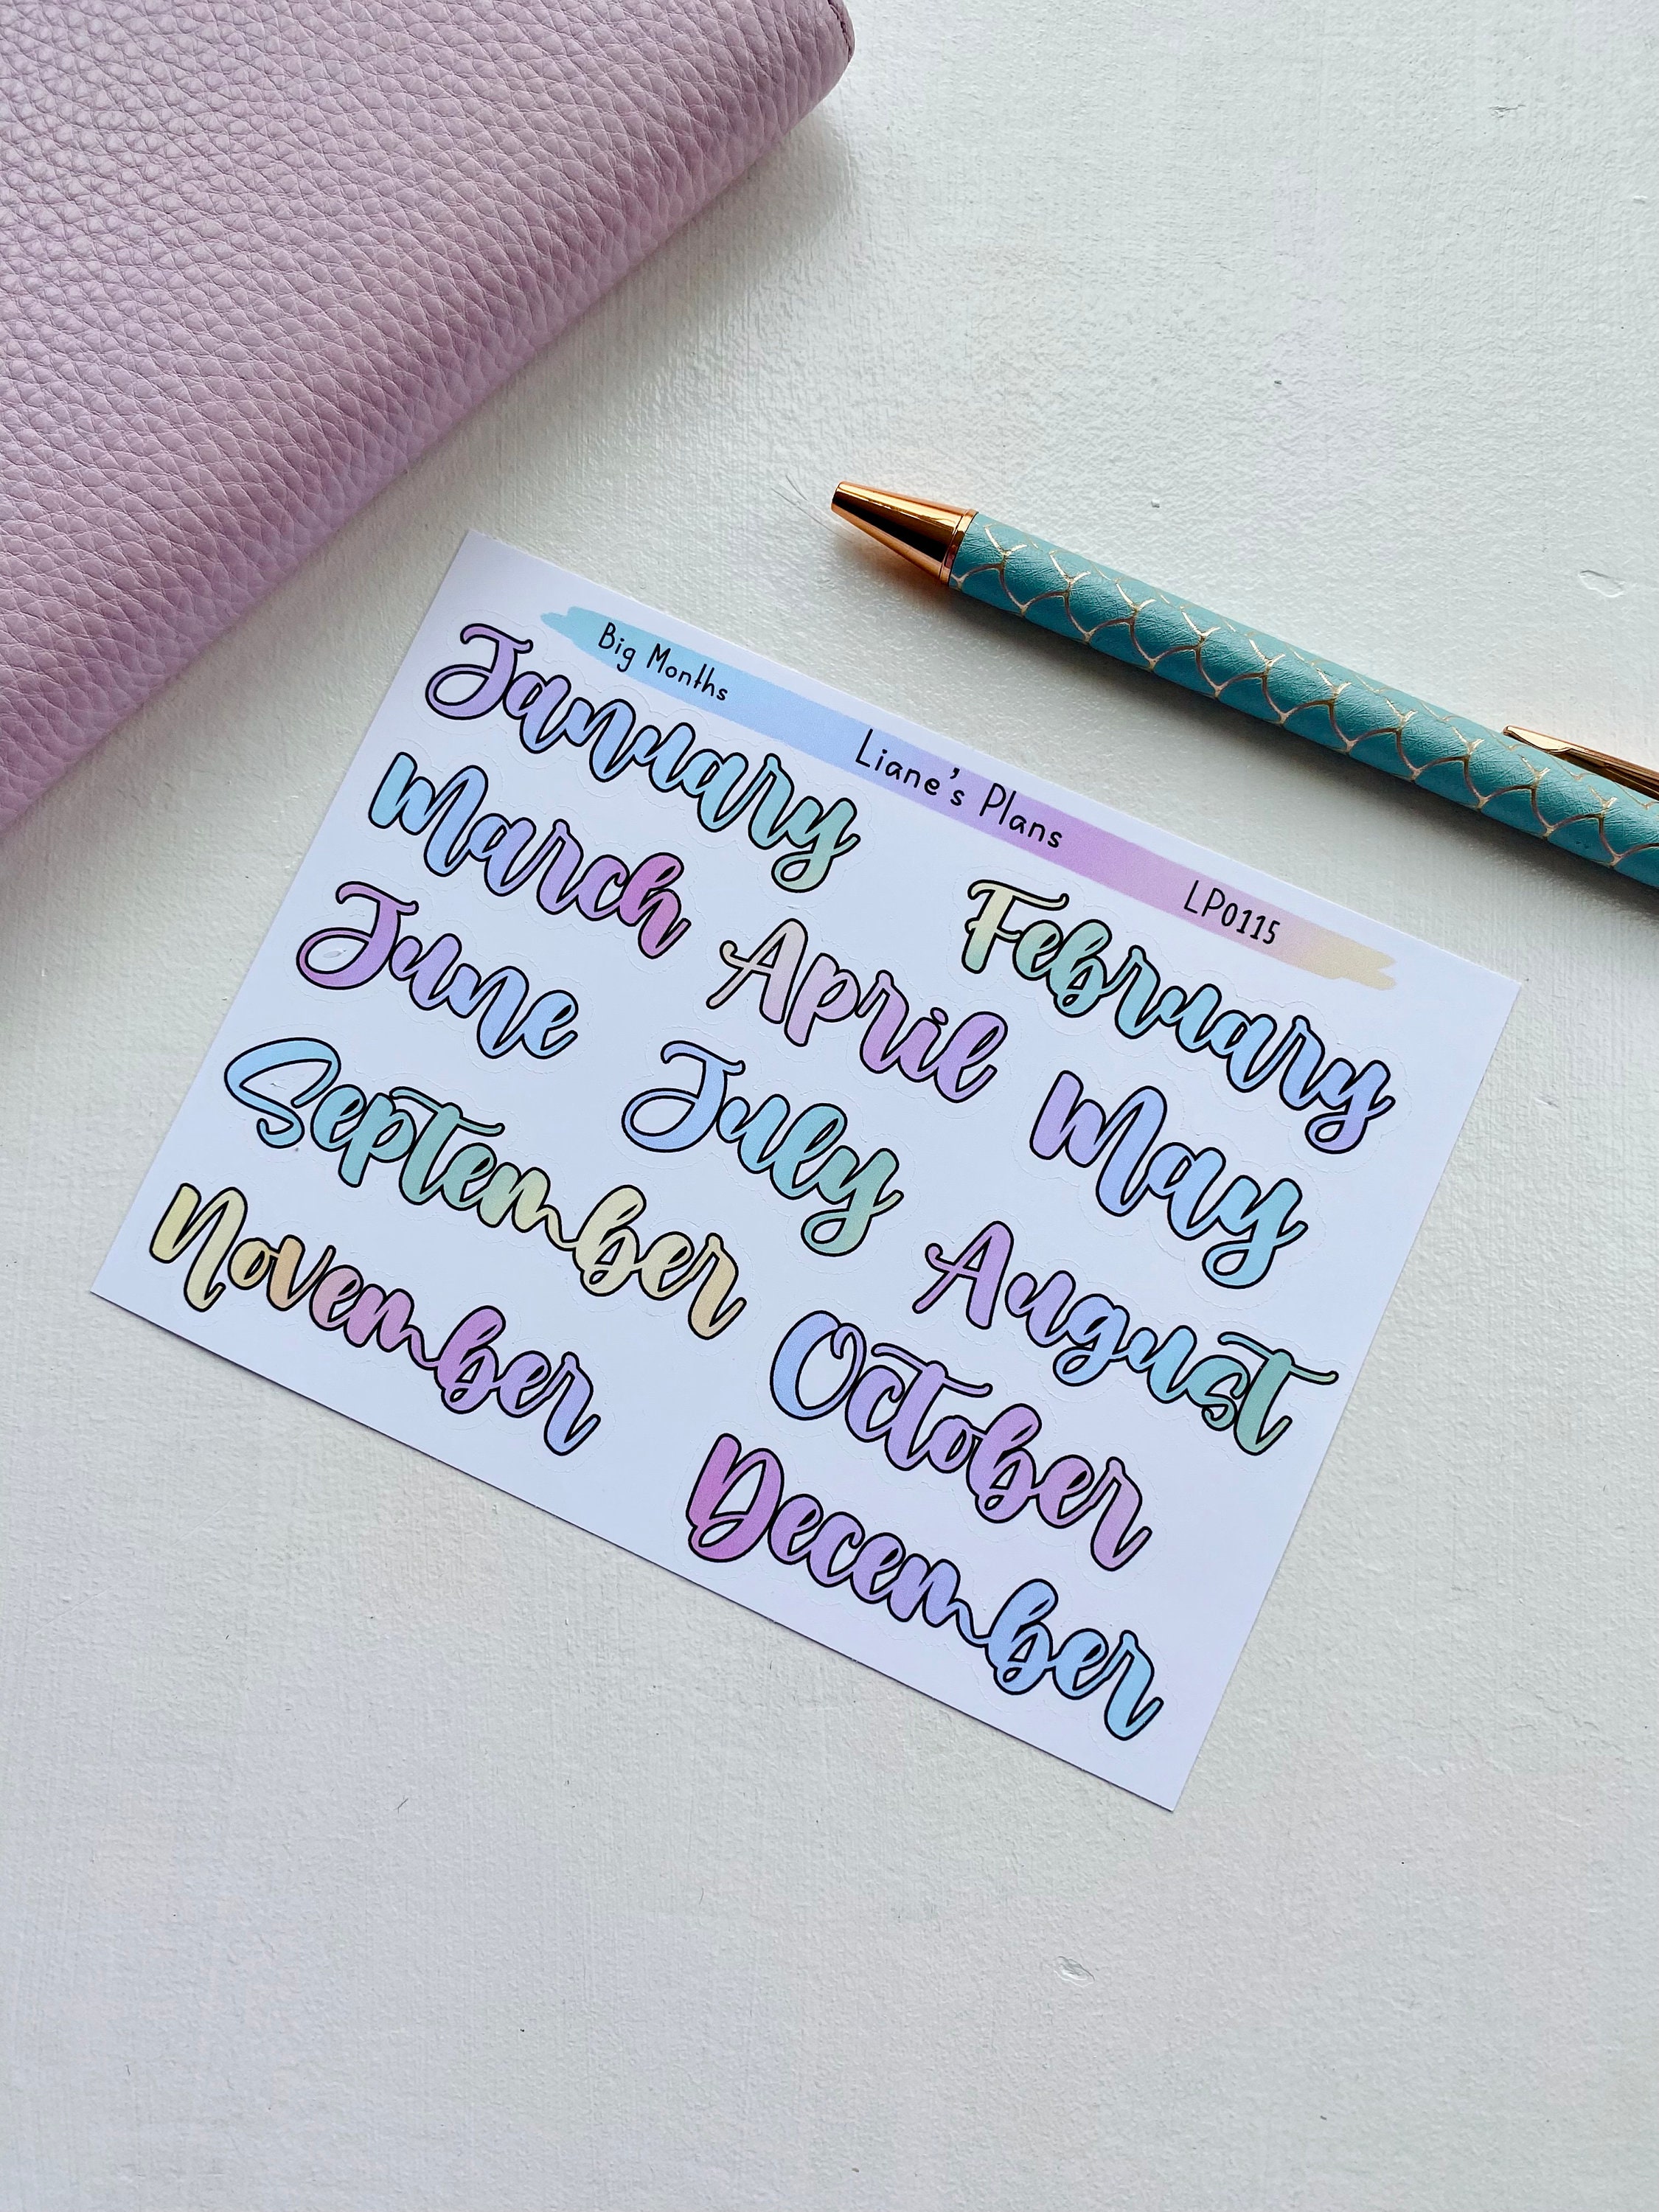 Big Months Liane's Plans LP0115
January February
March April May
June July August
September October
November December